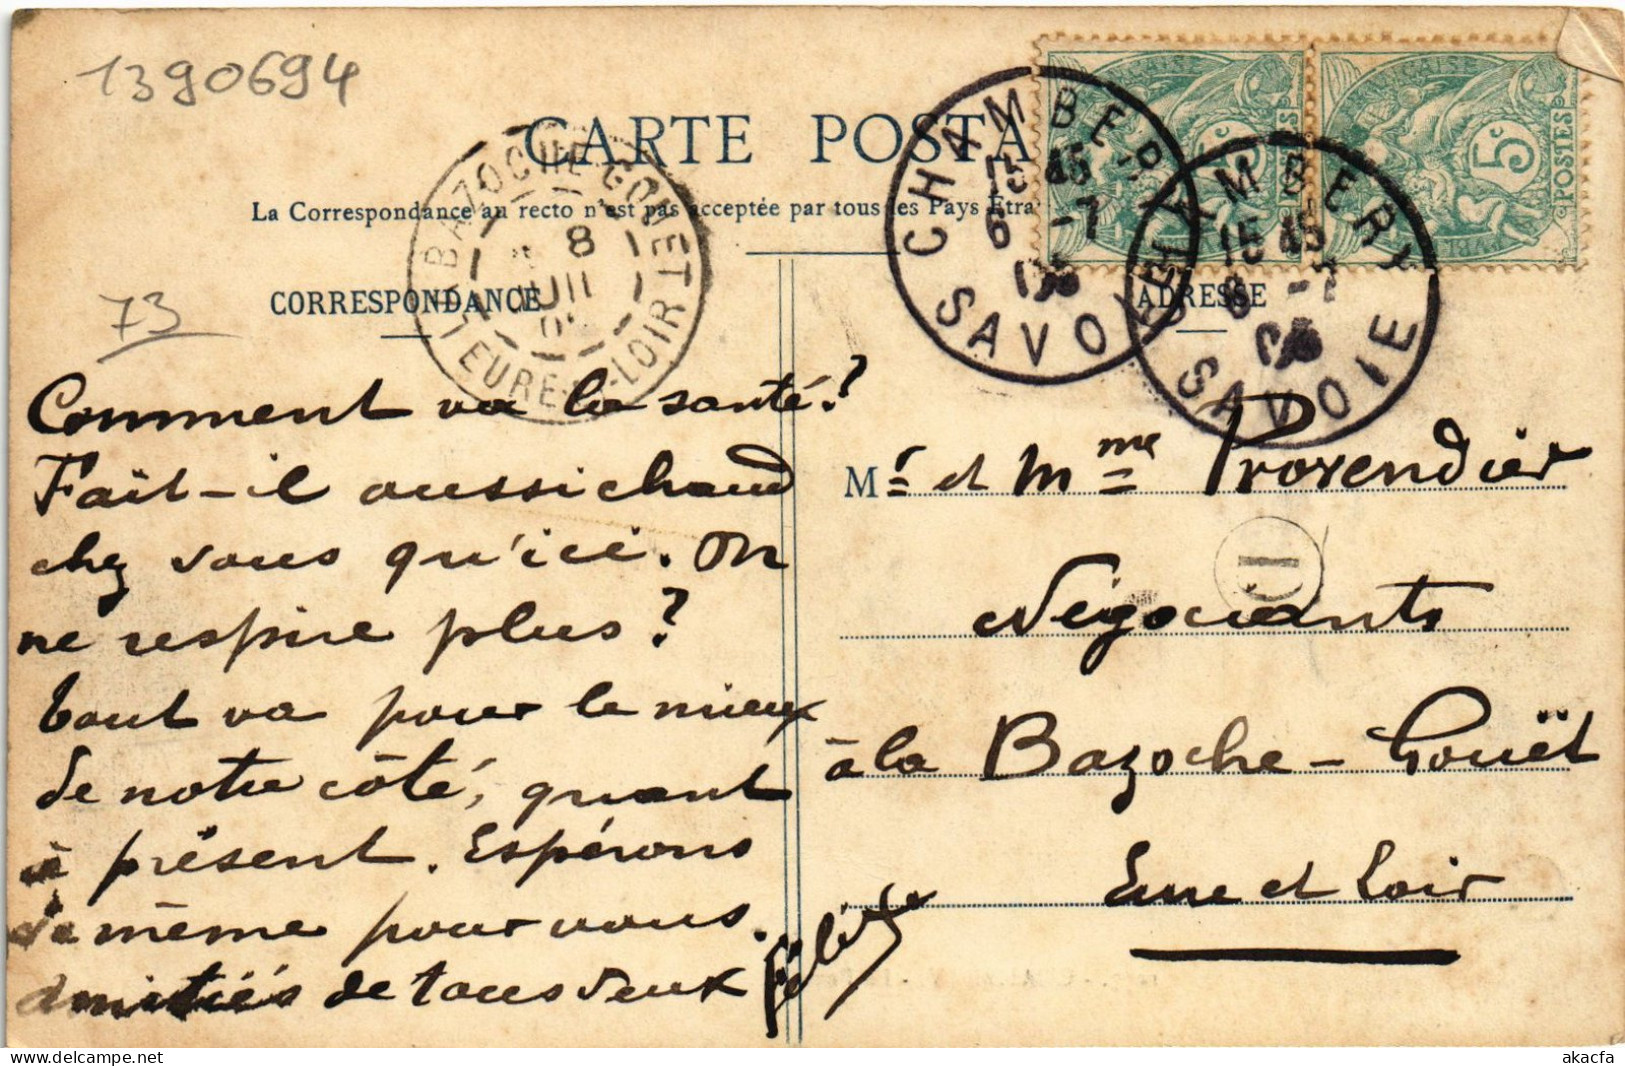 1390694
CARTE POSTA
La Correspondance au recto n'est pas acceptée par tous les Pays Etra
BAZOCHE-GOUET
8
EURE-&-LOIR
CHAMBERY
15 45
6 -7
SAVOIE
CHAMBERY
15 45
6 -7
SAVOIE
5c
POSTES
73
CORRESPONDANCE
ADRESSE
Comment va la santé?
Fait-il aussi chaud
chez vous qu'ici. On
ne respire plus?
tout va pour le mieux
de notre côté, quant
à présent. Espérons
de même pour vous.
amitiés de tous deux
Mr et Mme Provendier
Négociants
à la Bazoche-Gouët
Eure et Loir
akacfa